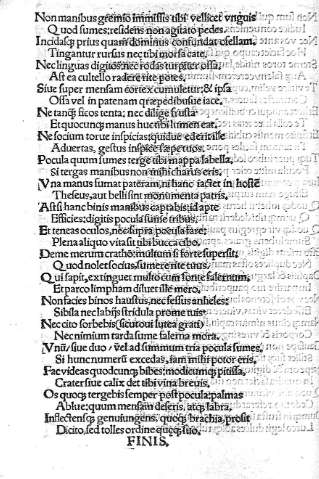 Non manibus gremio immissis tibi vellicet vnguis
Quod sumes: residens non agitato pedes.
Incidasq; prius quam dominus confundat ofellam,
Tingantur rursus nec tibi morsa cate,
Nec linguas digitos nec rodas turpiter ossa,
Ast ea cultello radere rite potes,
Siue super mensam cortex cumuletur, & ipsa
Ossa vel in patenam præpedibusue iace,
Ne tanq; ficos tenta; nec dilige frusta
Et quocunq; manus huc tibi lumen eat,
Ne socium torue inspicias; quidue ederit ille
Aduertas, gestus inspice sæpe tuos.
Pocula quum sumes terge tibi mappa labella,
Si tergas manibus non mihi charus eris,
Vna manus sumat pateram, ni hanc faciet in hostē
Theseus, aut bellissint monumenta patris.
Ast si hanc binis manibus capiabis, id apte
Efficies: digitis pocula sume tribus.
Et teneas oculos, nec supra pocula fare;
Plena aliquo vitasit tibi bucca cibo.
Deme merum crathō: multum si forte supersit;
Quod nolet socius, sumere rite tuus.
Qui sapit, extinguet multo cum fonte falernum,
Et parco lympham diluet ille mero,
Non facies binos haustus, nec fessus anheles;
Sibila nec labijs stridula prome tuis
Nec cito sorbebis (sicut oui lutea grati)
Nec nimium tarda sume falerna mora.
Vnū, siue duo vel ad summum tria pocula sumes,
Si hunc numerū excedas, iam mihi potor eris,
Fac videas quodcunq; bibes: modicumq; pitissa,
Crater siue calix det tibi vina breuis,
Os quoq; tergebis semper post pocula: palmas
Ablue: quum mensam deseris, atq; labra,
Inflectensq; genu iungens, quoq; brachia, prosit
Dicito, sed tolles ordine quæq; suo,
FINIS,